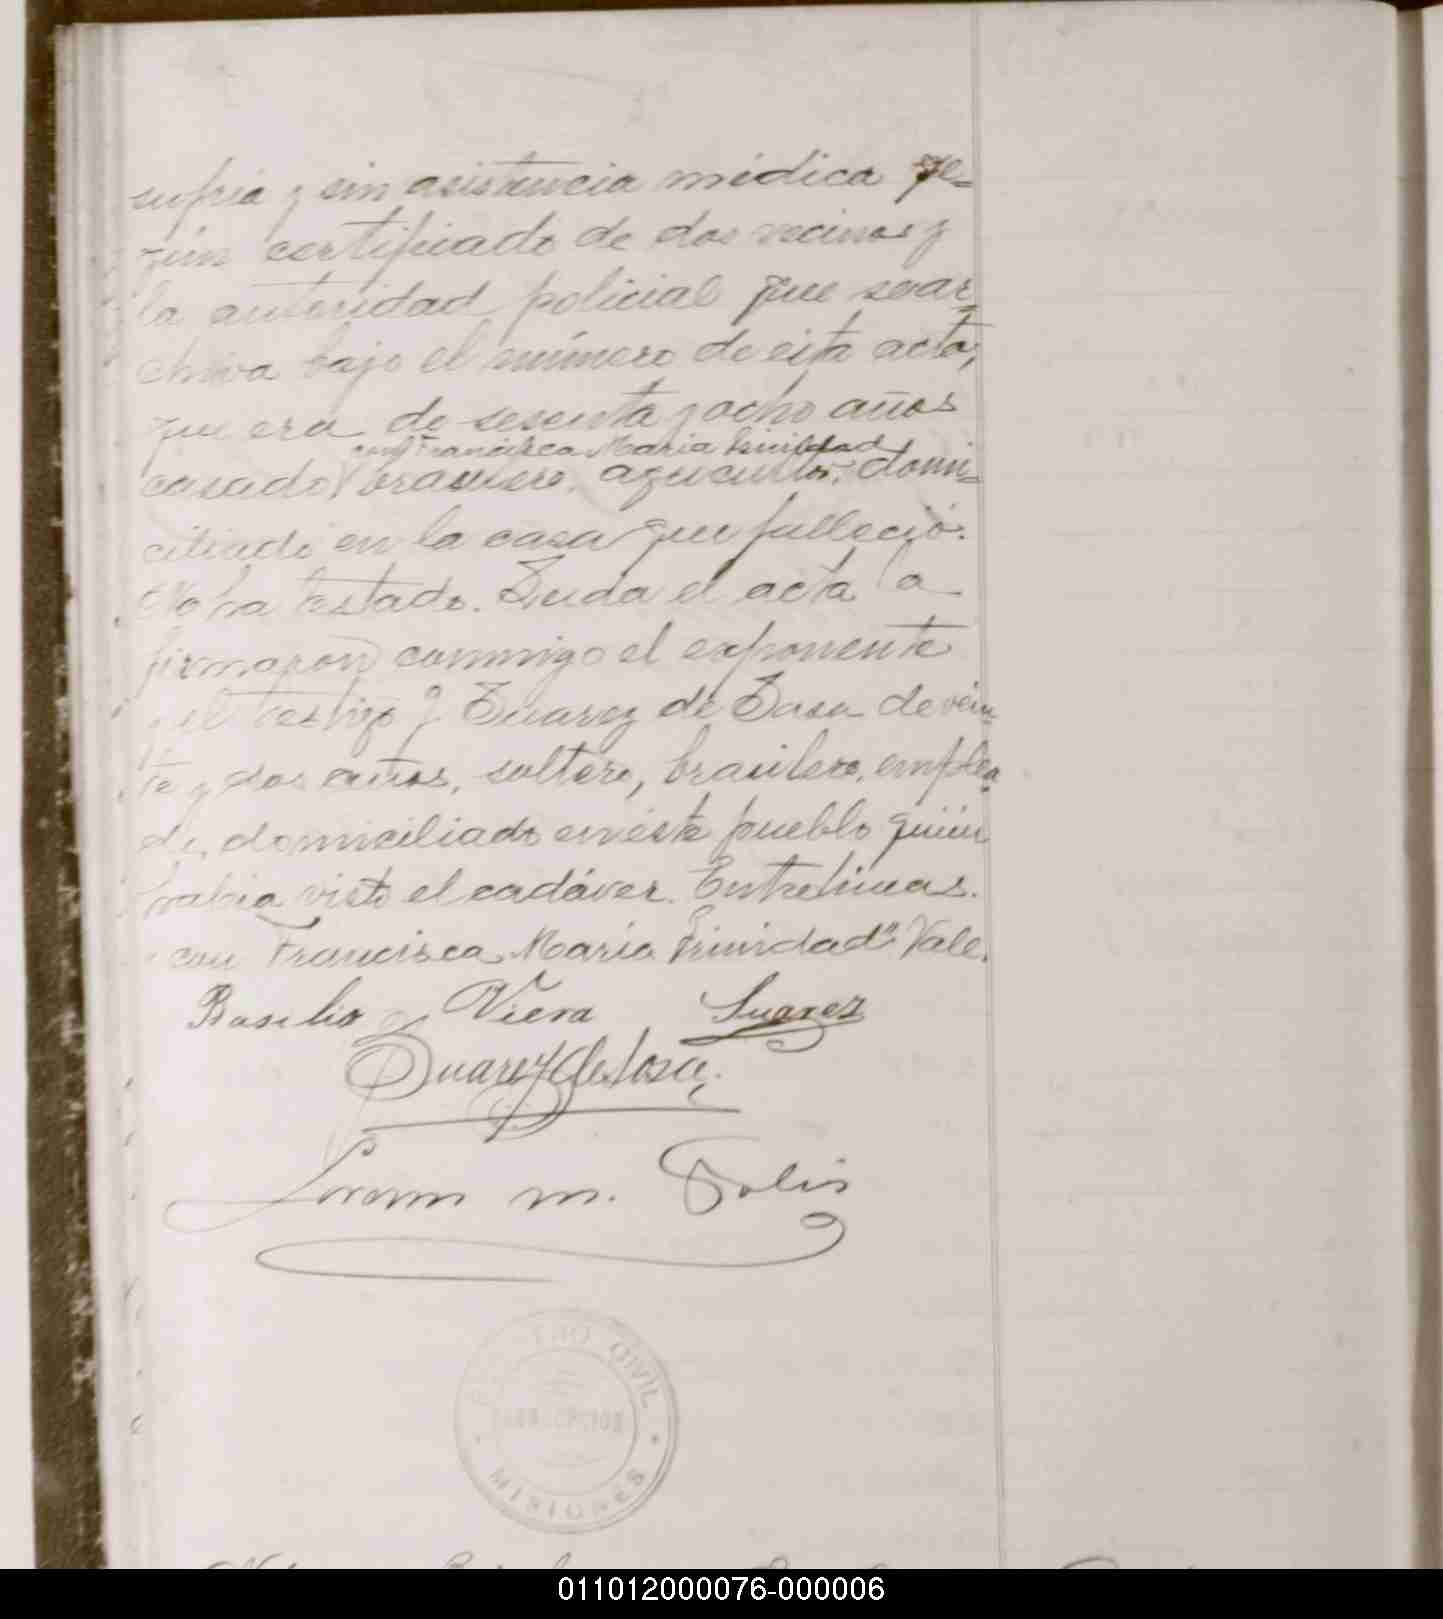 sufria y sin asistencia médica se-
gún certificado de dos vecinos y
la autoridad policial que se ar-
chiva bajo el número de esta acta,
que era de sesenta y ocho años
con Francisca Maria Trinidad
casado brasilero, agricultor, domi-
ciliado en la casa que falleció.
No ha testado. Leida el acta la
firmaron conmigo el exponente
y el testigo J Suarez de Sosa de vein-
te y dos años, soltero, brasilero, emplea-
do, domiciliado en éste pueblo quién
habia visto el cadáver. Entrelineas.
"con Francisca Maria Trinidad" Vale.
Basilio Viera Suarez
J Suarez de Sosa
M. Solis
REGISTRO CIVIL
CONCEPCION
MISIONES
011012000076-000006